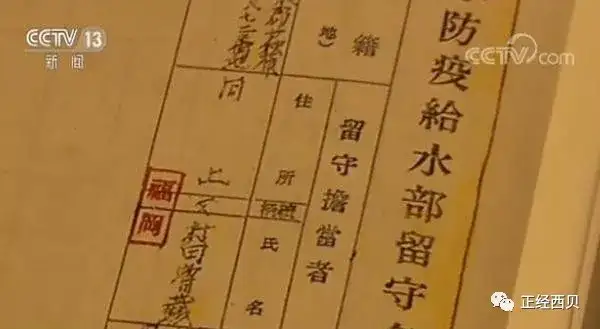 CCTV 13
新闻
CCTV.com
防疫給水部留守
籍
地)
留守擔當者
住所
續柄
氏名
同上
父
村田
福岡
正经西贝